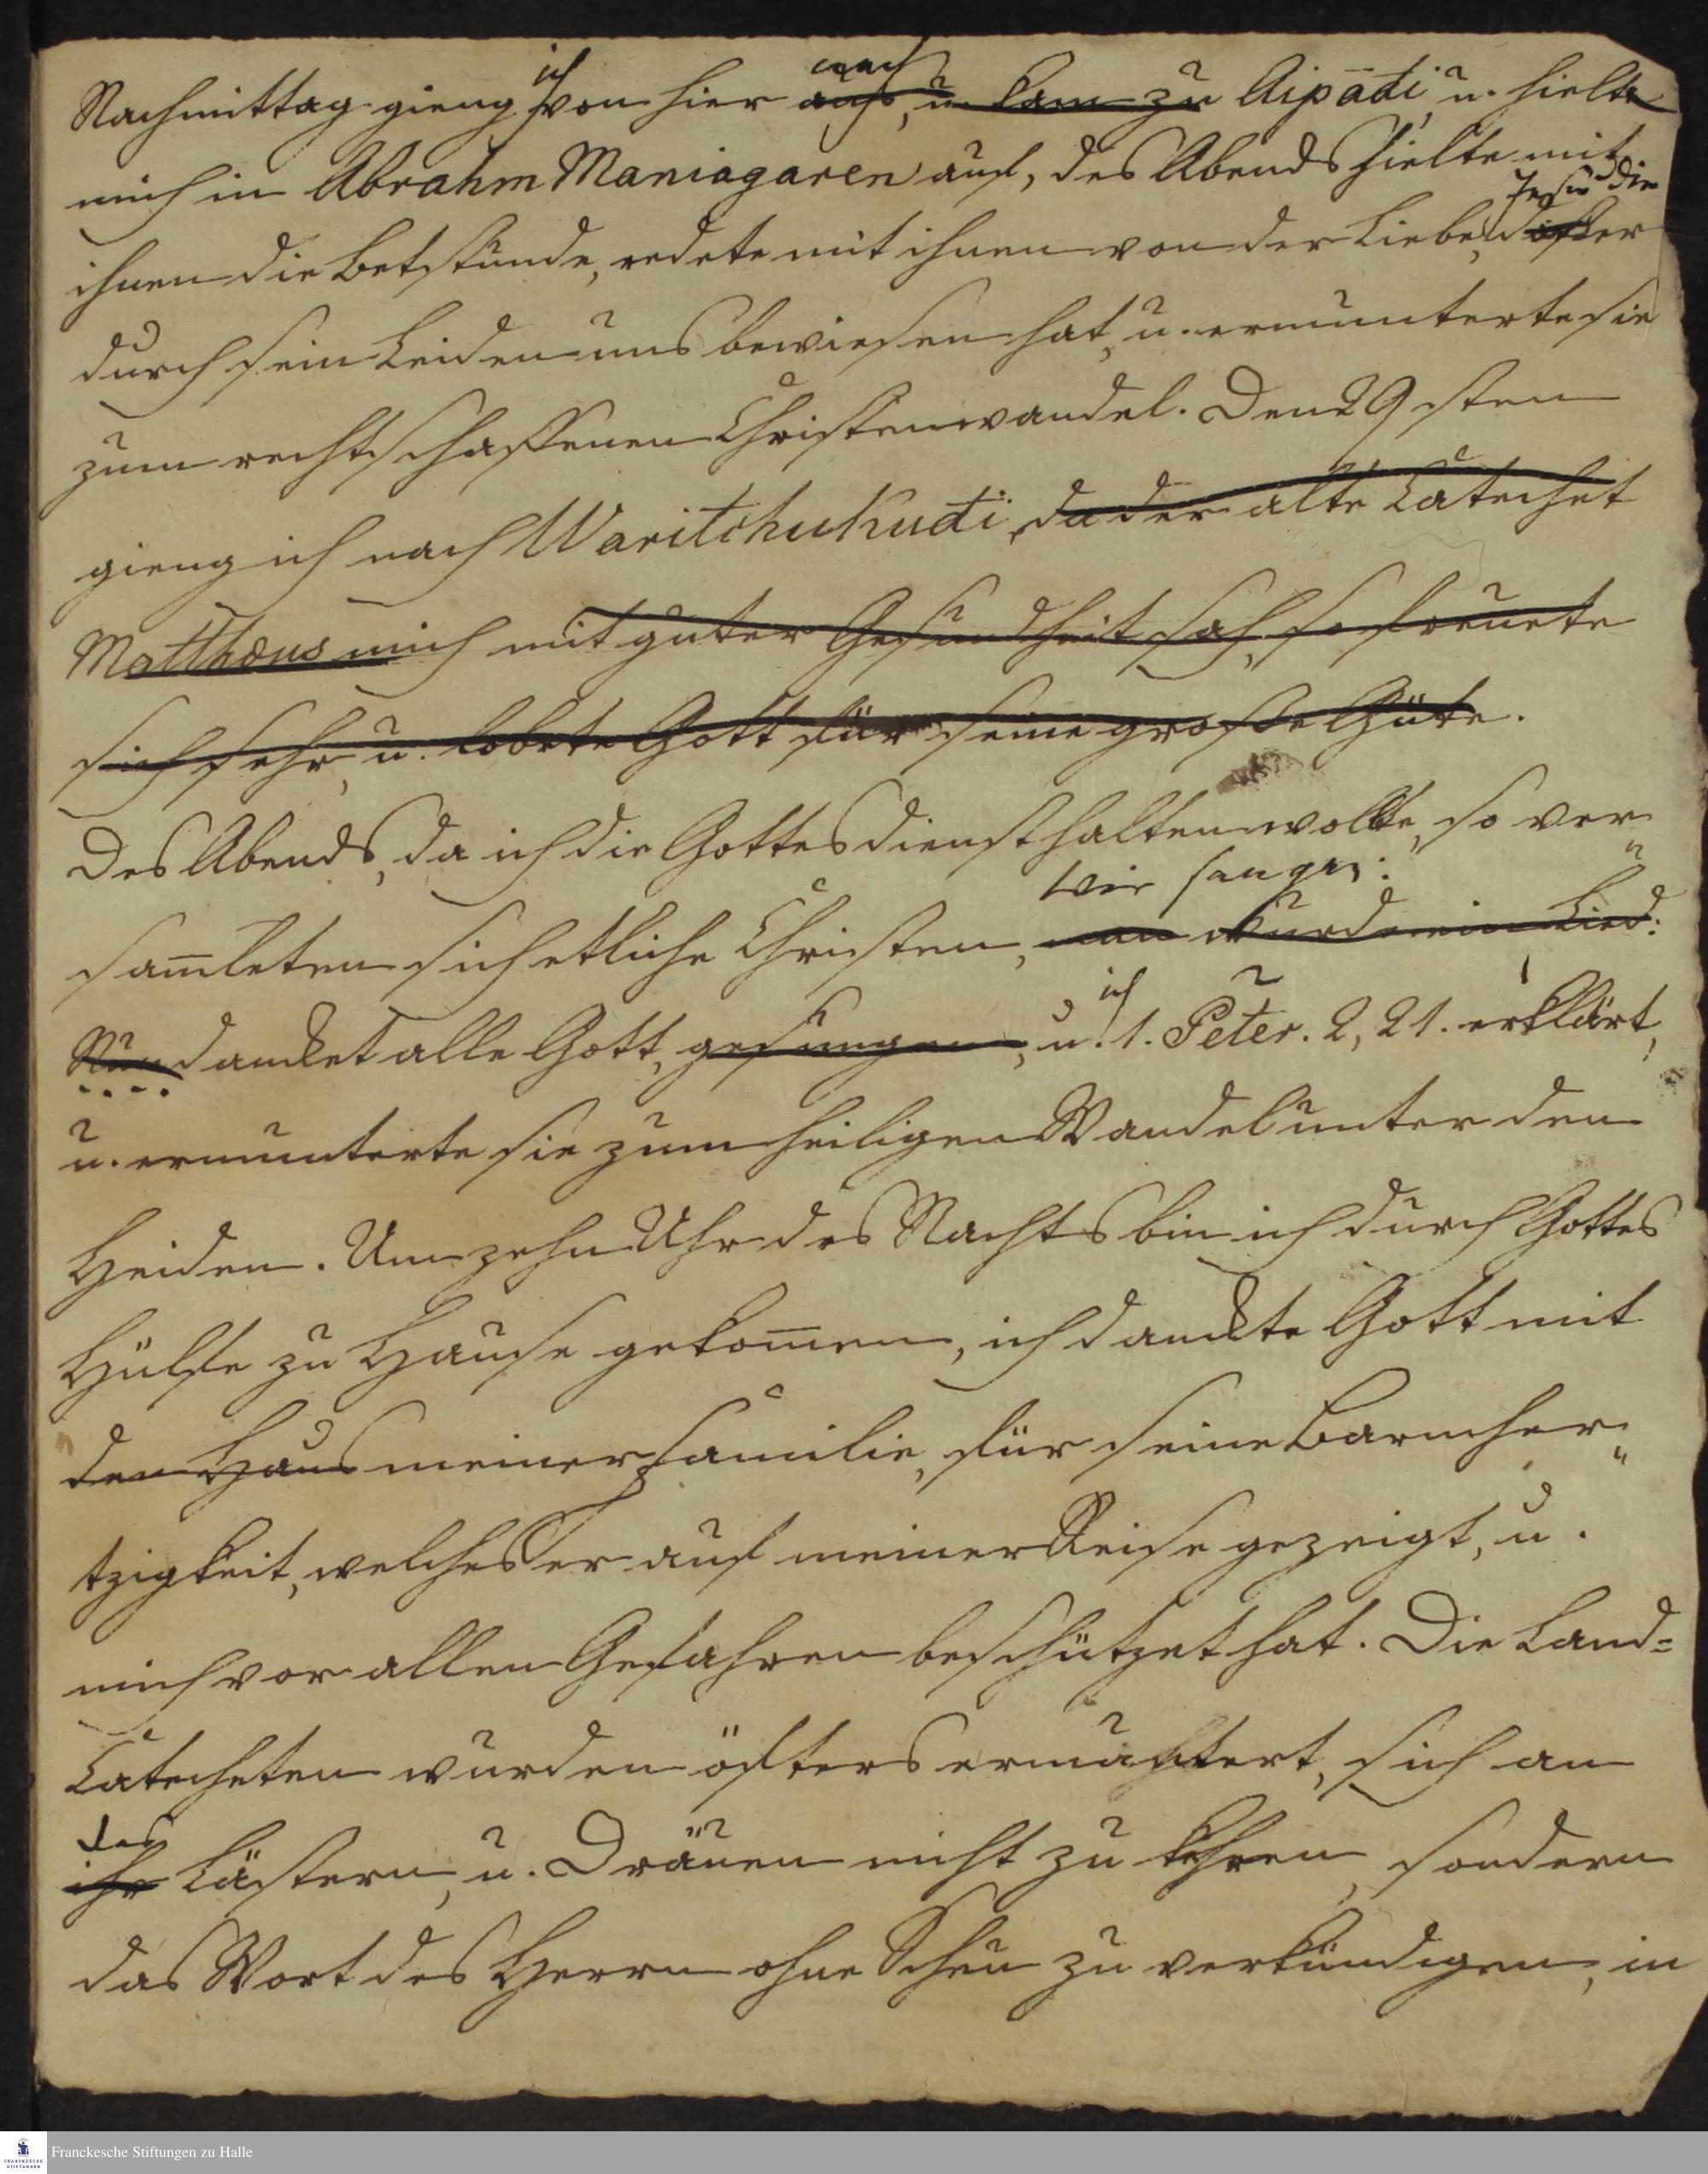 Nachmittag gieng ich von hier nach aus, u. kam zu Aipādi, u. hielte
mich in Abrahm Maniagaren auf, des Abends hielte mit
ihnen die Betstunde, redete mit ihnen von der Liebe Jesu die er
durch sein Leiden uns bewiesen hat, u. ermunterte sie
zum rechtschaffenen Christenwandel. Den 29sten
gieng ich nach Waritchukudi, da der alte Catechet
Matthæus mich mit guter Gesundheit sah, so freuete
sich sehr, u. lobete Gott für seine große Güte.
Des Abends, da ich die Gottesdienst halten wolte, so ver„
sam̅leten sich etliche Christen, wir sangen: man wurde ein Lied:
Nun dancket alle Gott, gesungen, u. ich 1. Peter. 2, 21. erklärt,
u. ermunterte sie zum heiligen Wandel unter den
Heiden. Um zehn Uhr des Nachts bin ich durch Gottes
Hülfe zu Hause gekom̅en, ich danckte Gott mit
den Haus meiner Familie, für seine Barmher„
tzigkeit, welches er auf meiner Reise gezeigt, u.
mich vor allen Gefahren beschützet hat. Die Land=
Catecheten wurden öfters ermuntert, sich an
das ihr Lästern, u. Dräuen nicht zu kehren, sondern
das Wort des Herrn ohne Scheu zu verkündigen, in
Franckesche Stiftungen zu Halle